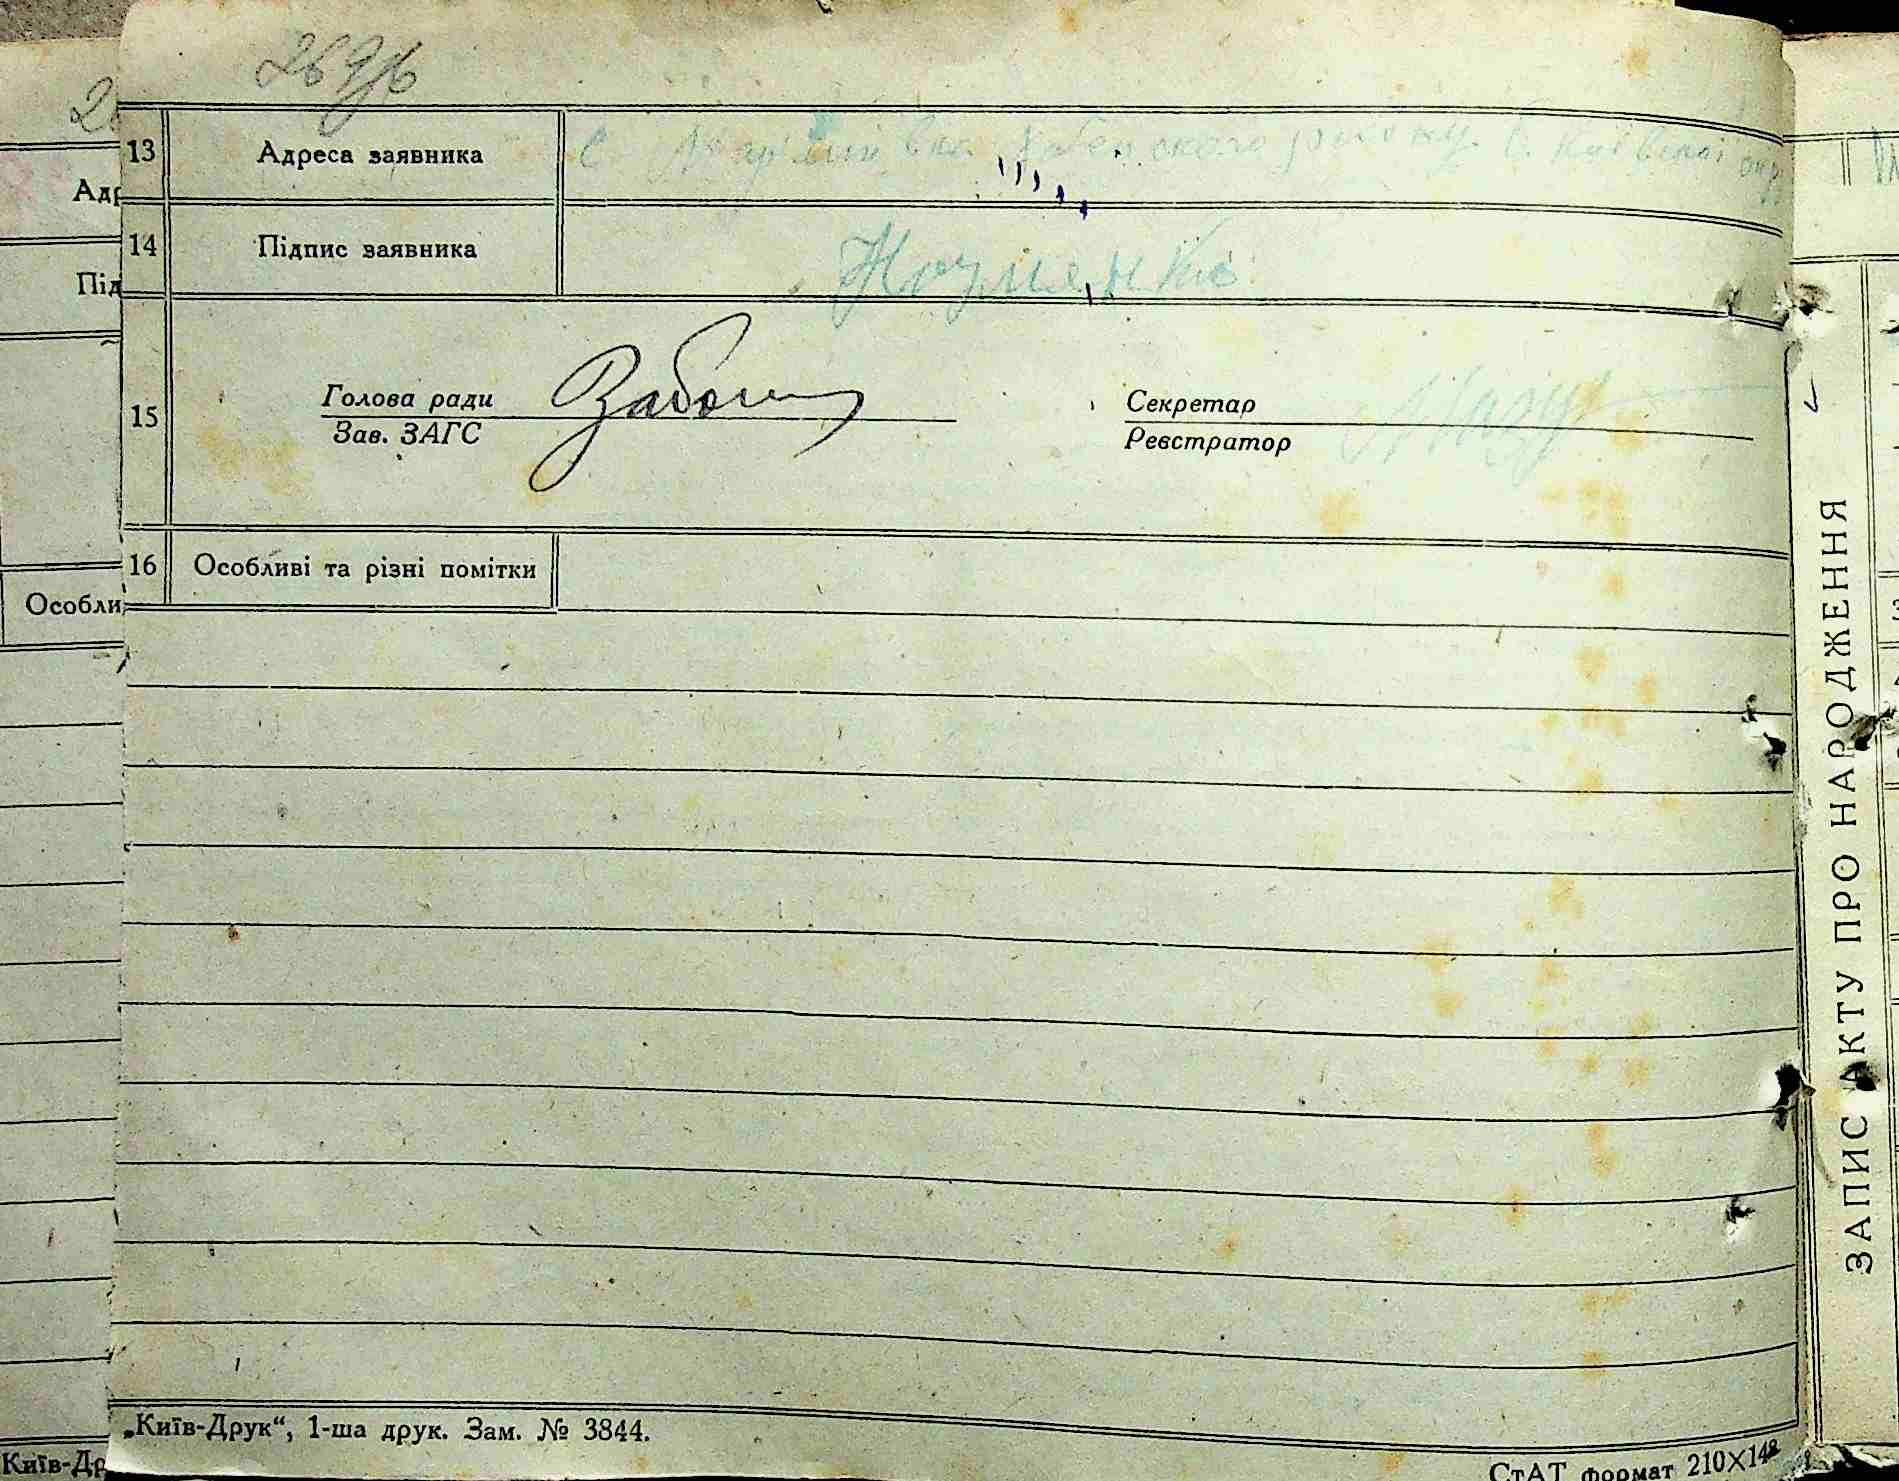 269зв
13 Адреса заявника с. району Київської окр
14 Підпис заявника Науменко
15 Голова ради Секретар
Зав. ЗАГС Реєстратор
16 Особливі та різні помітки
„Київ-Друк“, 1-ша друк. Зам. № 3844.
СтАТ формат 210×148
ЗАПИС АКТУ ПРО НАРОДЖЕННЯ
Адр
Під
Особли
Київ-Др